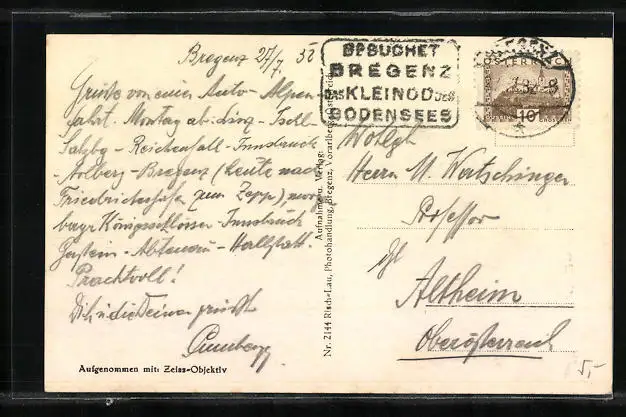 Bregenz 27/7 35
Grüße von einer Auto-Alpen-
fahrt. Montag ab: Linz - Ischl -
Salzbg - Reichenhall - Innsbruck
- Arlberg - Bregenz (heute nach
Friedrichshafen zum Zepp)
bayr Königsschlösser - Innsbruck
Gastein - Abtenau - Hallstatt.
Prachtvoll!
Dich u die Deinen grüßt
Aufgenommen mit: Zeiss-Objektiv
Nr. 2144 Risch-Lau, Photohandlung, Bregenz, Vorarlberg, Österreich
Aufnahme u. Verlag:
BESUCHET
BREGENZ
DAS KLEINOD DES
BODENSEES
ÖSTERREICH
10
Wohlgb
Herrn M. Wertschinger
Professor
Altheim
Oberösterreich
5,-